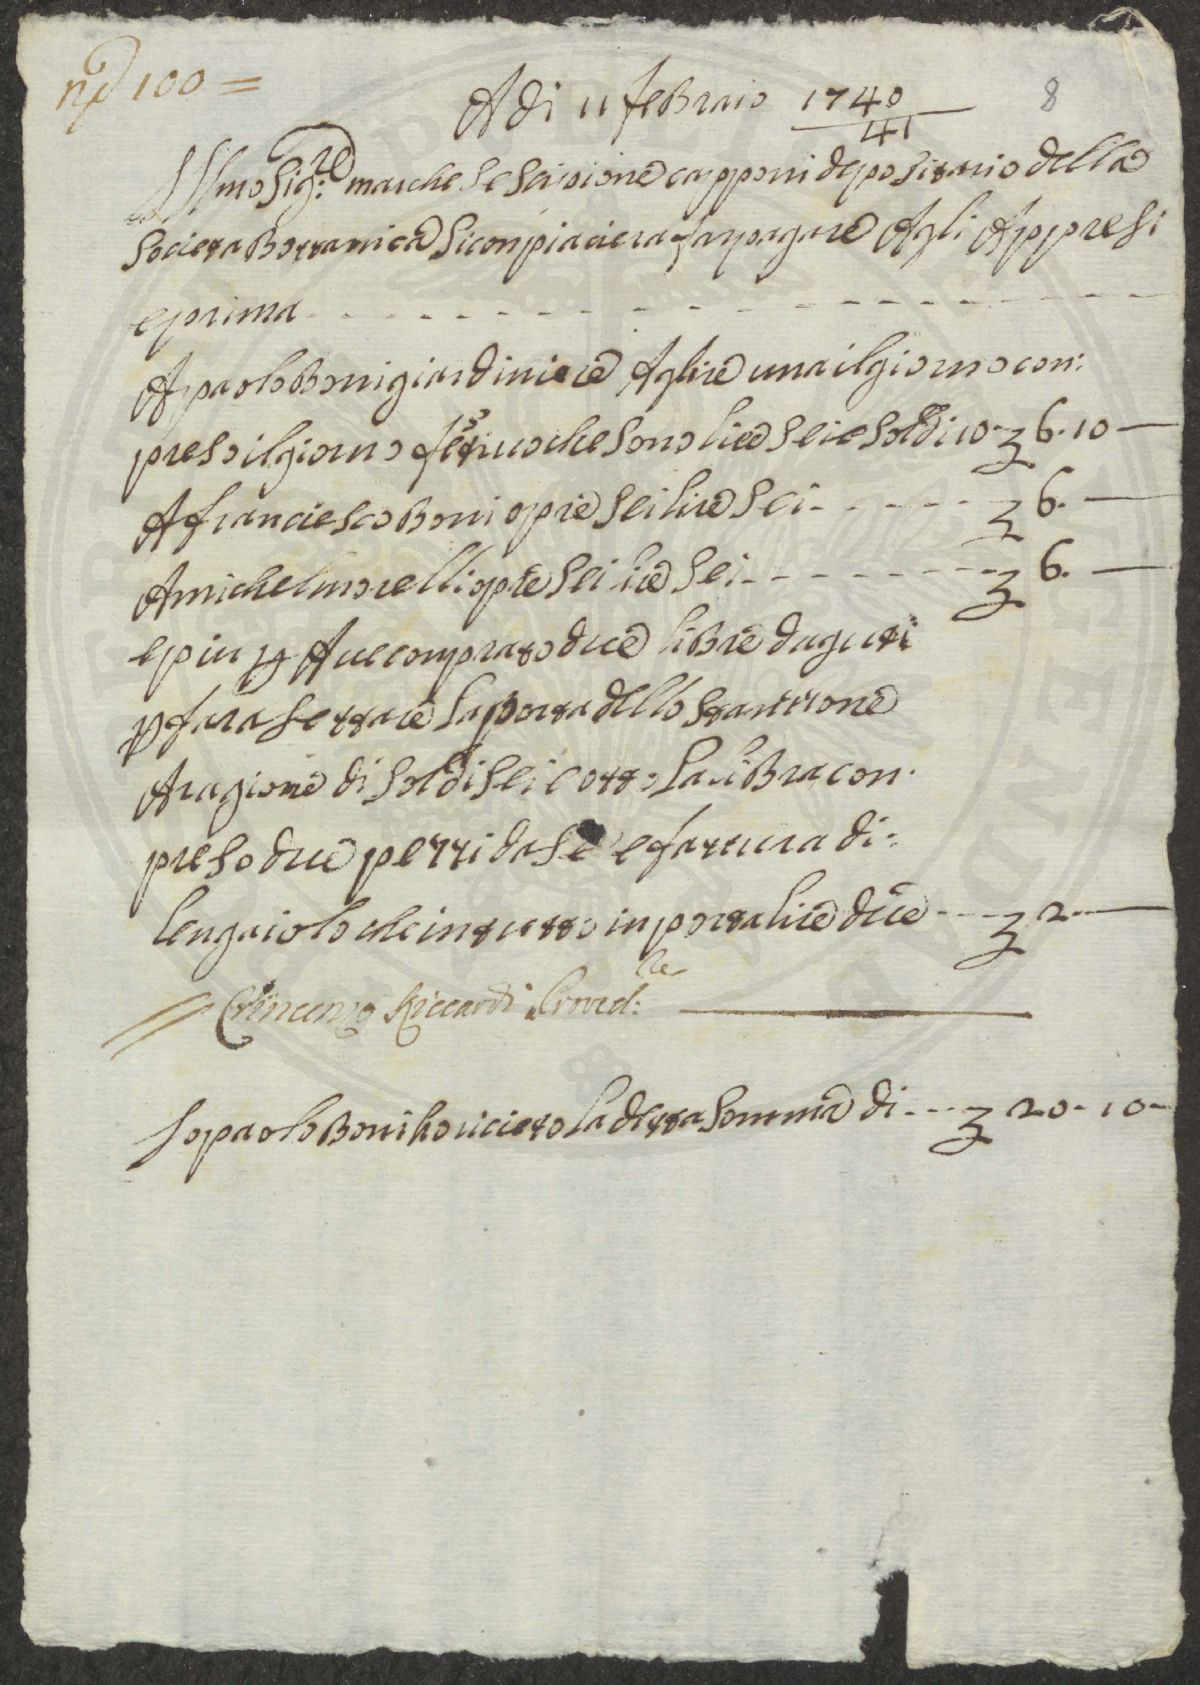 n.° 100 =
A di 11 feBraio 1740/41
8
Ill.mo Sig:re marchese Scipione capponi depositario della
Societa Bottanica Si conpiaciera far pagare Agli Appresi
e prima
A paolo Boni giardiniere A lire una il giorno con:
preso il giorno festiuo che sono lire sei e soldi 10 - £ 6.10 —
A franciesco Boni opre sei lire sei - - - £ 6. —
A michel morelli opre sei lire sei - - - £ 6. —
e piu p Auer conprato due libre daguti
p fara serrare la porta dello stantione
A ragione di soldi sei e otto la liBra con-
preso due petti da se e fattura di:
lengaiolo che in tutto inporta lire due - - - £ 2. —
Vincenzo Riccardi Proved:re
Io paolo Boni ho riceuto la detta somma di - - - £ 20-10-